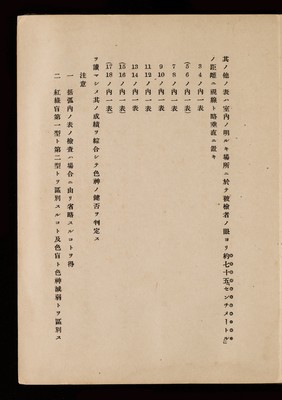 其ノ他ノ表ハ室內ノ明ルキ場所ニ於テ被檢者ノ眼ヨリ約七十五「センチメートル」
ノ距離ニ視線ト略垂直ニ置キ
3 4ノ內一表
(5 6ノ內一表)
7 8ノ內一表
9 10ノ內一表
11 12ノ內一表
13 14ノ內一表
(15 16ノ內一表)
(17 18ノ內一表)
ヲ讀マシメ其ノ成績ヲ綜合シテ色神ノ健否ヲ判定ス
注意
一 括弧內ノ表ノ檢査ハ場合ニ由リ省略スルコトヲ得
二 紅綠盲第一型ト第二型トヲ區別スルコト及色盲ト色神減弱トヲ區別ス